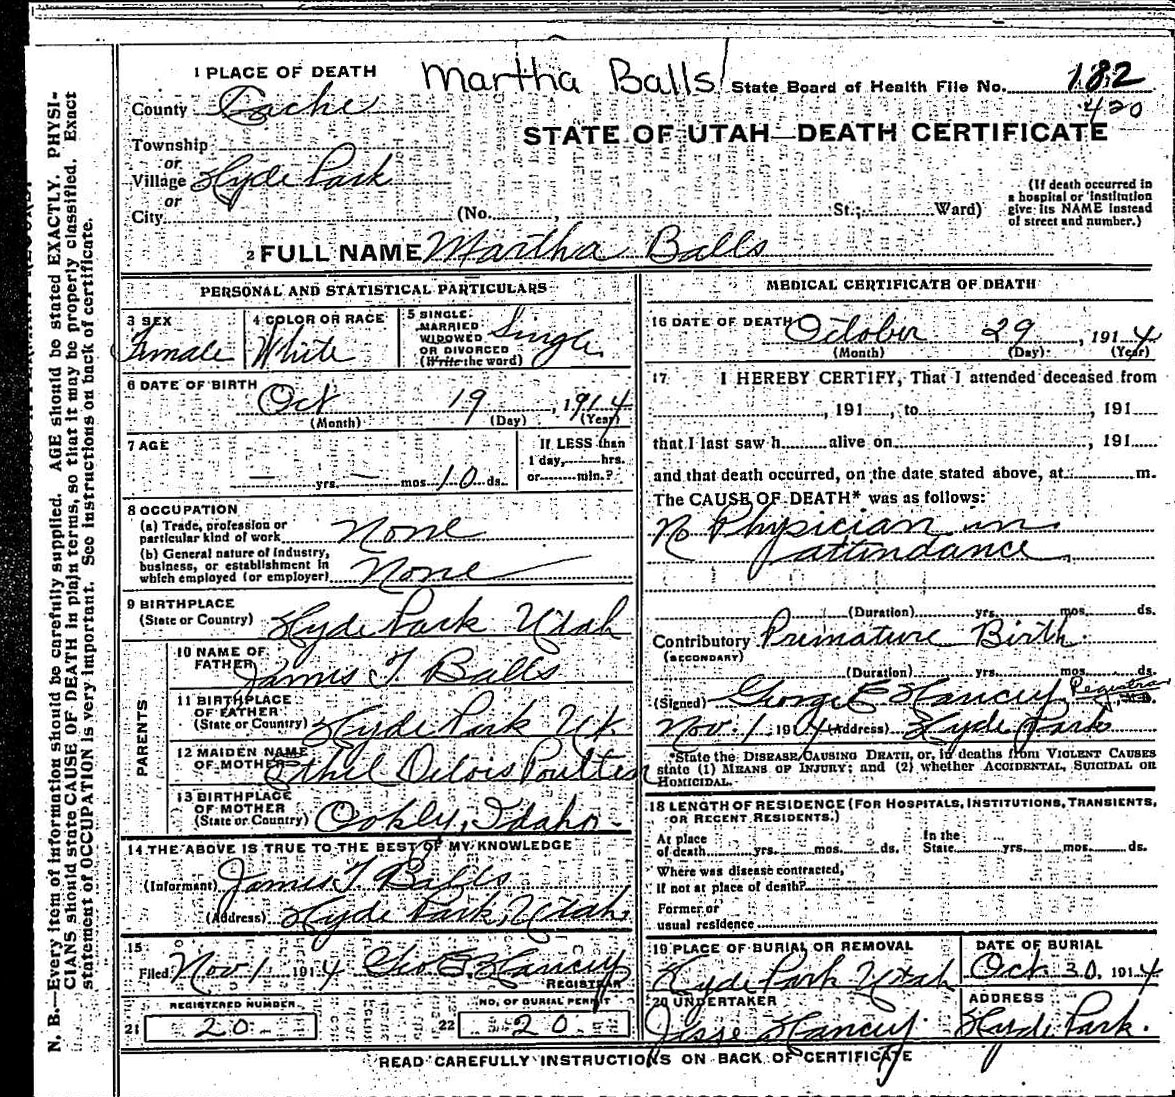 1 PLACE OF DEATH
Martha Balls
State Board of Health File No. 182
420
County Cache
STATE OF UTAH—DEATH CERTIFICATE
Township
or
Village Hyde Park
or
City (No. , St.; Ward)
(If death occurred in
a hospital or institution
give its NAME instead
of street and number.)
2 FULL NAME Martha Balls
PERSONAL AND STATISTICAL PARTICULARS
3 SEX
Female
4 COLOR OR RACE
White
5 SINGLE
MARRIED
WIDOWED
OR DIVORCED
(Write the word)
Single
6 DATE OF BIRTH
Oct 19, 1914
(Month) (Day) (Year)
7 AGE
— yrs. — mos. 10 ds.
If LESS than
1 day, hrs.
or min.?
8 OCCUPATION
(a) Trade, profession or
particular kind of work None
(b) General nature of industry,
business, or establishment in
which employed (or employer) None
9 BIRTHPLACE
(State or Country) Hyde Park Utah
PARENTS
10 NAME OF
FATHER James T. Balls
11 BIRTHPLACE
OF FATHER
(State or Country) Hyde Park Ut.
12 MAIDEN NAME
OF MOTHER Ethel Delois Poulter
13 BIRTHPLACE
OF MOTHER
(State or Country) Ookly, Idaho
14 THE ABOVE IS TRUE TO THE BEST OF MY KNOWLEDGE
(Informant) James T. Balls
(Address) Hyde Park, Utah
15
Filed Nov 1 1914 Geo E. Hancey
REGISTRAR
REGISTERED NUMBER
21 20
NO. OF BURIAL PERMIT
22 20
MEDICAL CERTIFICATE OF DEATH
16 DATE OF DEATH October 29, 1914
(Month) (Day) (Year)
17 I HEREBY CERTIFY, That I attended deceased from
, 191 , to , 191
that I last saw h alive on , 191
and that death occurred, on the date stated above, at m.
The CAUSE OF DEATH* was as follows:
No Physician in
attendance
(Duration) yrs. mos. ds.
Contributory Premature Birth
(SECONDARY)
(Duration) yrs. mos. ds.
(Signed) George E Hancey Registrar M.D.
Nov. 1 1914 (Address) Hyde Park
*State the DISEASE CAUSING DEATH, or, in deaths from VIOLENT CAUSES
state (1) MEANS OF INJURY; and (2) whether ACCIDENTAL, SUICIDAL OR
HOMICIDAL.
18 LENGTH OF RESIDENCE (FOR HOSPITALS, INSTITUTIONS, TRANSIENTS,
OR RECENT RESIDENTS.)
At place
of death yrs. mos. ds.
In the
State yrs. mos. ds.
Where was disease contracted,
if not at place of death?
Former or
usual residence
19 PLACE OF BURIAL OR REMOVAL
Hyde Park Utah
DATE OF BURIAL
Oct. 30, 1914
20 UNDERTAKER
Jesse Hancey.
ADDRESS
Hyde Park.
READ CAREFULLY INSTRUCTIONS ON BACK OF CERTIFICATE
N. B.—Every item of information should be carefully supplied. AGE should be stated EXACTLY. PHYSI-
CIANS should state CAUSE OF DEATH in plain terms, so that it may be properly classified. Exact
statement of OCCUPATION is very important. See instructions on back of certificate.